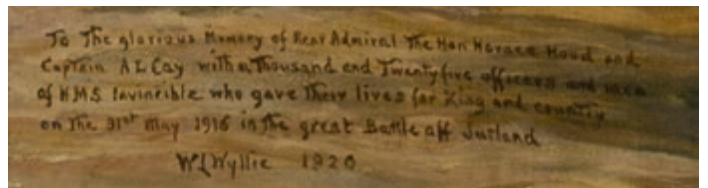 To The glorious Memory of Rear Admiral The Hon Horace Hood and
Captain A L Cay with a Thousand and Twentyfive officers and men
of HMS Invincible who gave Their lives for King and country
on The 31st May 1916 in The great Battle off Jutland
W L Wyllie 1920